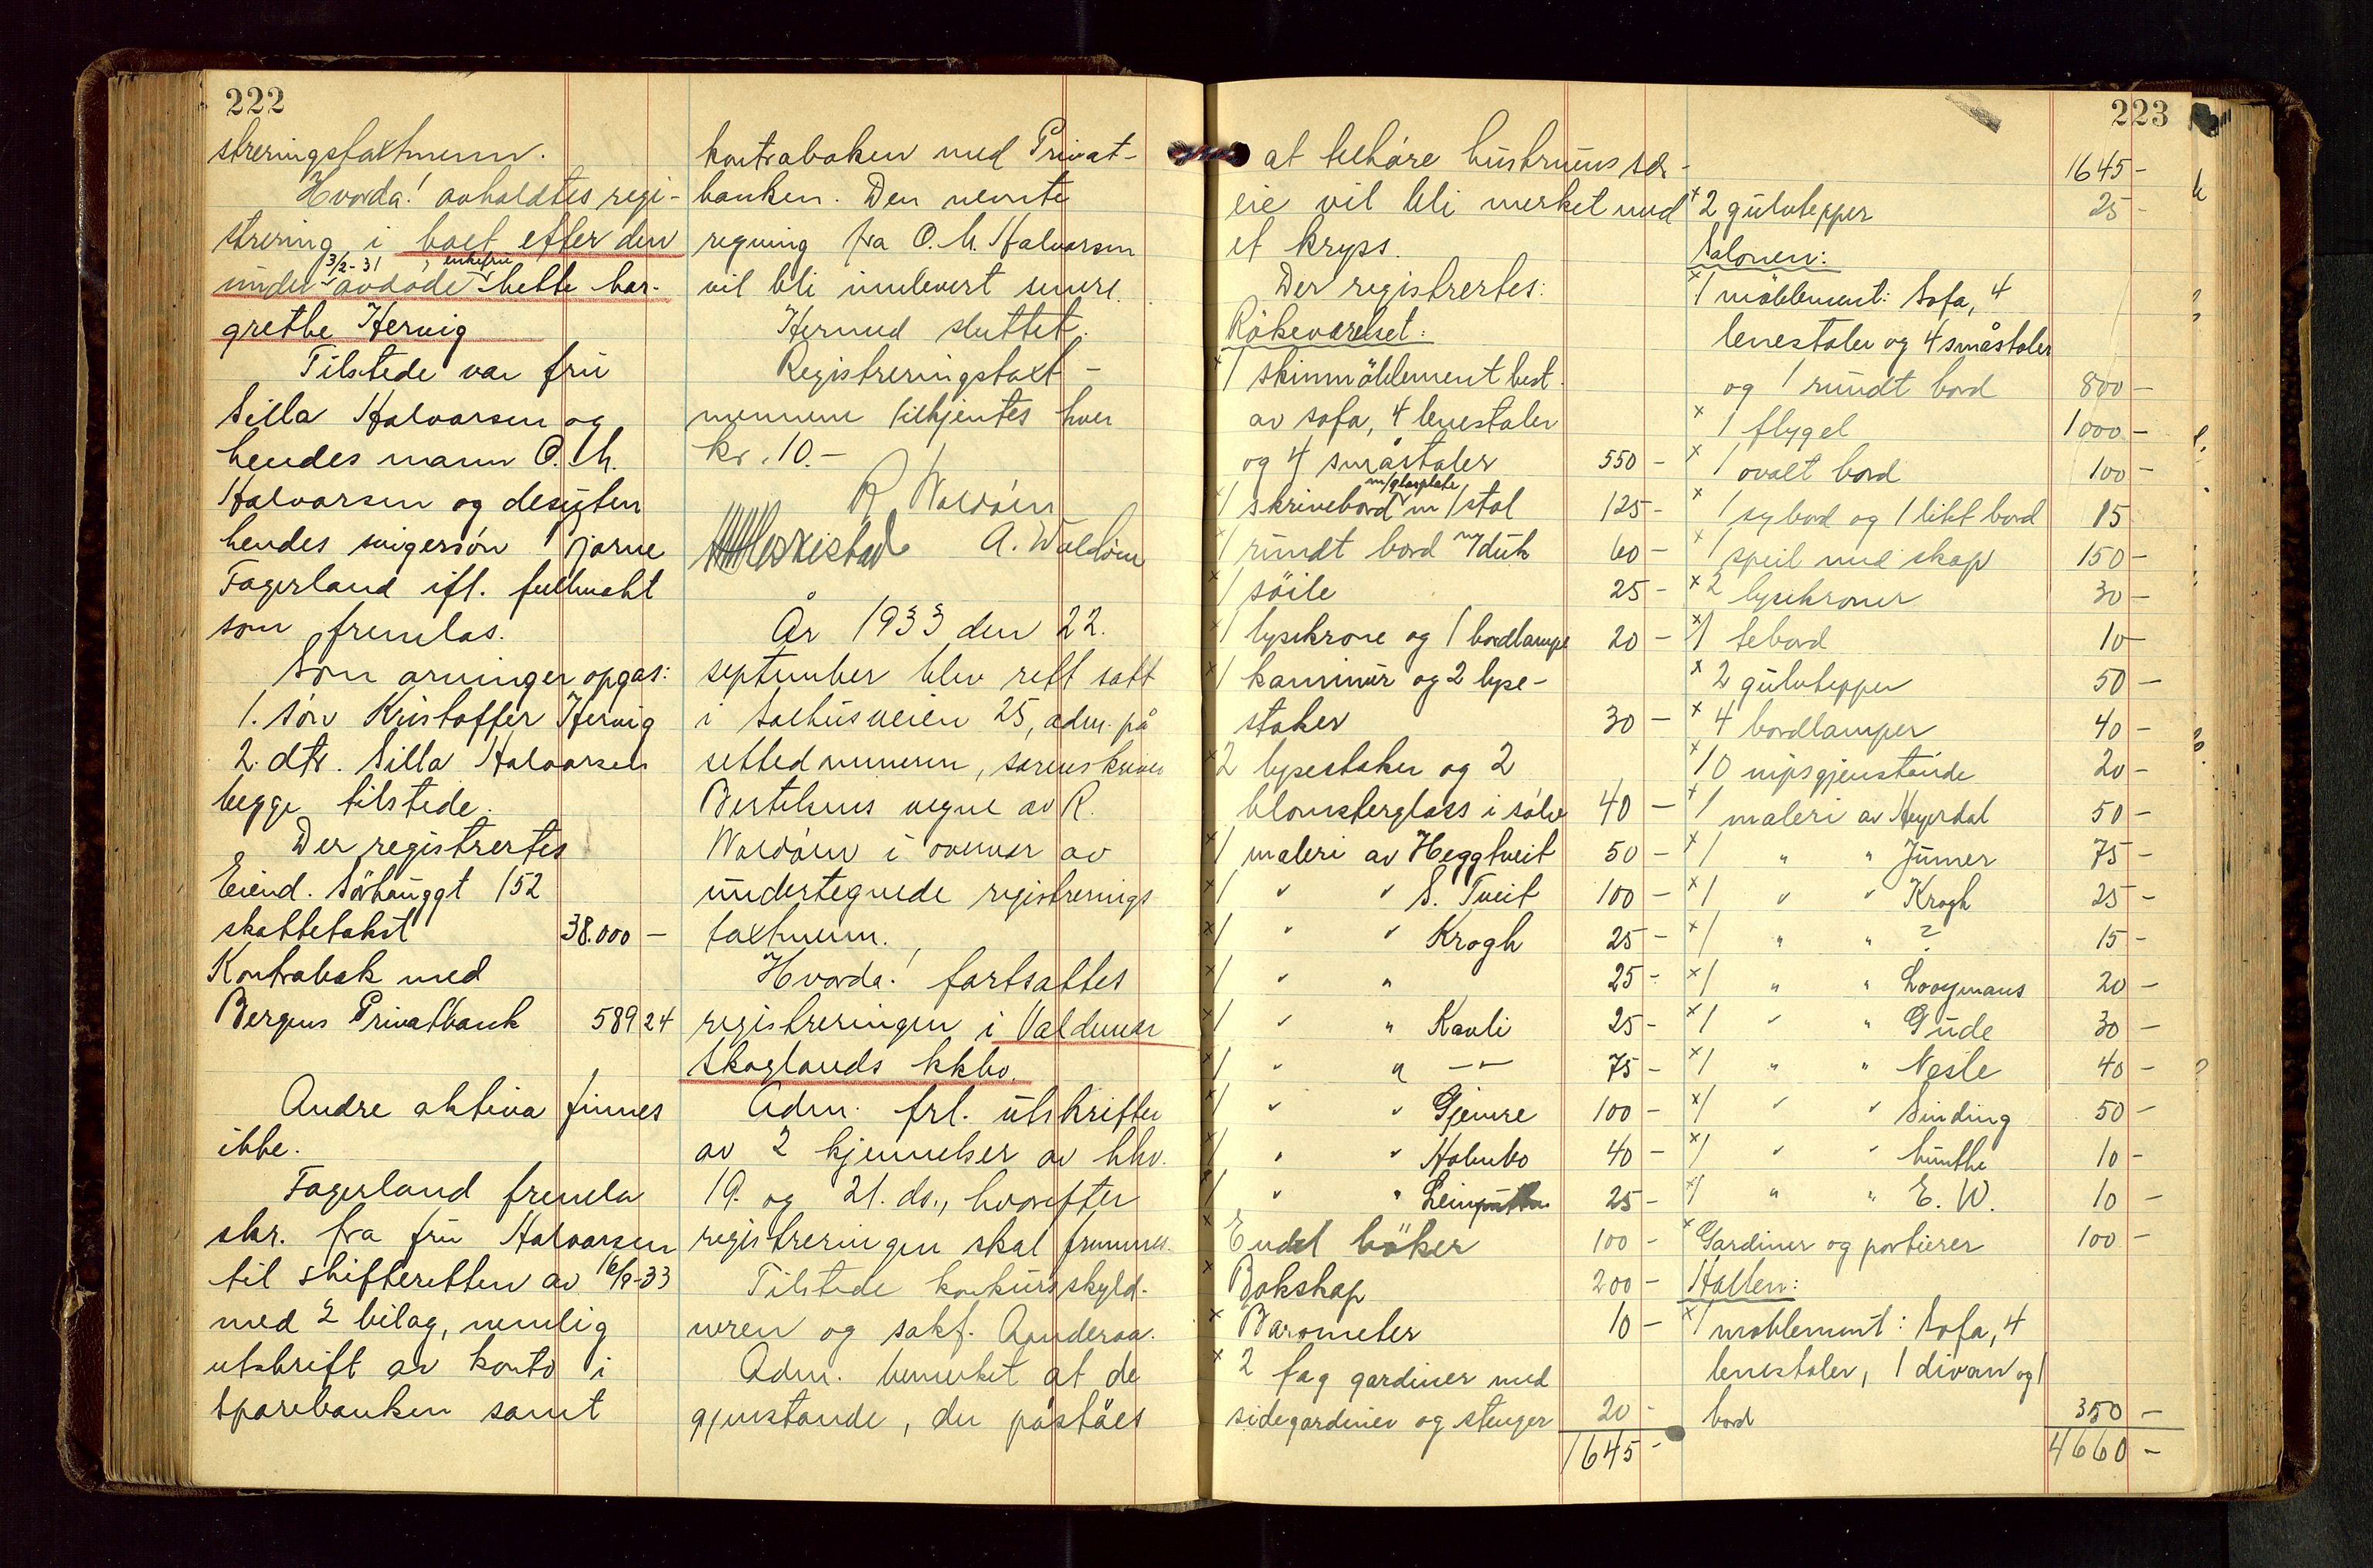 222
streringstakstmenn.
Hvorda! avholdtes regi-
strering i boet efter den
3/2-31 enkefru
under avdøde Mette Mar-
grethe Hervig
Tilstede var fru
Silla Halvorsen og
hendes mann O. M.
Halvorsen og desuten
hendes svigersön Bjarne
Fagerland ifl. fullmakt
som fremlas.
Som arvinger opgas:
1. Sön Kristoffer Hervig
2. dtr. Silla Halvorsen
begge tilstede.
Der registrertes
Eiend. Sörhauggt 152
skattetakst 38.000 -
Kontrabok med
Bergens Privatbank 589 24
Andre aktiva finnes
ikke.
Fagerland fremla
skr. fra fru Halvorsen
til skifteretten av 16/9-33
med 2 bilag, nemlig
utskrift av konto i
Sparebanken samt
kontraboken med Privat-
banken. Den nevnte
regning fra O. M. Halvorsen
vil bli innlevert senere.
Hermed sluttet.
Registreringstakst-
mennene tilkjentes hver
kr. 10.-
R Waldöen
A. Waldöen
År 1933 den 22.
september blev rett satt
i Salhusveien 25, adm. på
settedommeren, sorenskriver
Bertelsens vegne av R.
Waldöen i overvær av
undertegnede registrerings
takstmenn.
Hvorda! fortsattes
registreringen i Valdemar
Skoglands kkbo.
Adm. frl. utskrifter
av 2 kjennelser av hhv.
19. og 21. ds., hvorefter
registreringen skal fremmes.
Tilstede konkursskyld-
neren og sakf. Aanderaa.
Adm. bemerket at de
gjenstande, der påståes
223
at tilhöre hustruens sær-
eie vil bli merket med
et kryss.
Der registrertes:
Rökeværelset:
x 1 skinnmöblement best.
av sofa, 4 lenestoler
og 4 småstoler 550 -
m/glassplate
x 1 skrivebord m 1 stol 125 -
x 1 rundt bord m/duk 60 -
x 1 söile 25 -
x 1 lysekrone og 1 bordlampe 20 -
x 1 kaminur og 2 lyse-
staker 30 -
x 2 lysestaker og 2
blomsterglass i sölv 40 -
x 1 maleri av Heggtveit 50 -
x 1 " " S. Tveit 100 -
x 1 " " Krogh 25 -
x 1 " " 25 -
x 1 " " Kavli 25 -
x 1 " " -"- 75 -
x 1 " " Gjemre 100 -
x 1 " " Holmbo 40 -
x 1 " " 25 -
x Endel böker 100 -
x Bokskap 200 -
x Barometer 10 -
x 2 fag gardiner med
sidegardiner og stenger 20 -
1645 -
1645 -
x 2 gulvtepper 25 -
Salonen:
x 1 möblement: Sofa, 4
lenestoler og 4 småstoler
og 1 rundt bord 800 -
x 1 flygel 1000 -
x 1 ovalt bord 100 -
x 1 sybord og 1 litet bord 15
x 1 speil med skap 150 -
x 2 lysekroner 30 -
x 1 tebord 10 -
x 2 gulvtepper 50 -
x 4 bordlamper 40 -
x 10 nipsgjenstande 20 -
x 1 maleri av Heyerdal 50 -
x 1 " " Junier 75 -
x 1 " " Krogh 25 -
x 1 " " ? 15 -
x 1 " " Looymans 20 -
x 1 " " Gude 30 -
x 1 " " Nesle 40 -
x 1 " " Sinding 50 -
x 1 " " Munthe 10 -
x 1 " " E. W. 10 -
x Gardiner og portierer 100 -
Hallen:
x 1 möblement: Sofa, 4
lenestoler, 1 divan og 1
bord 350 -
4660 -